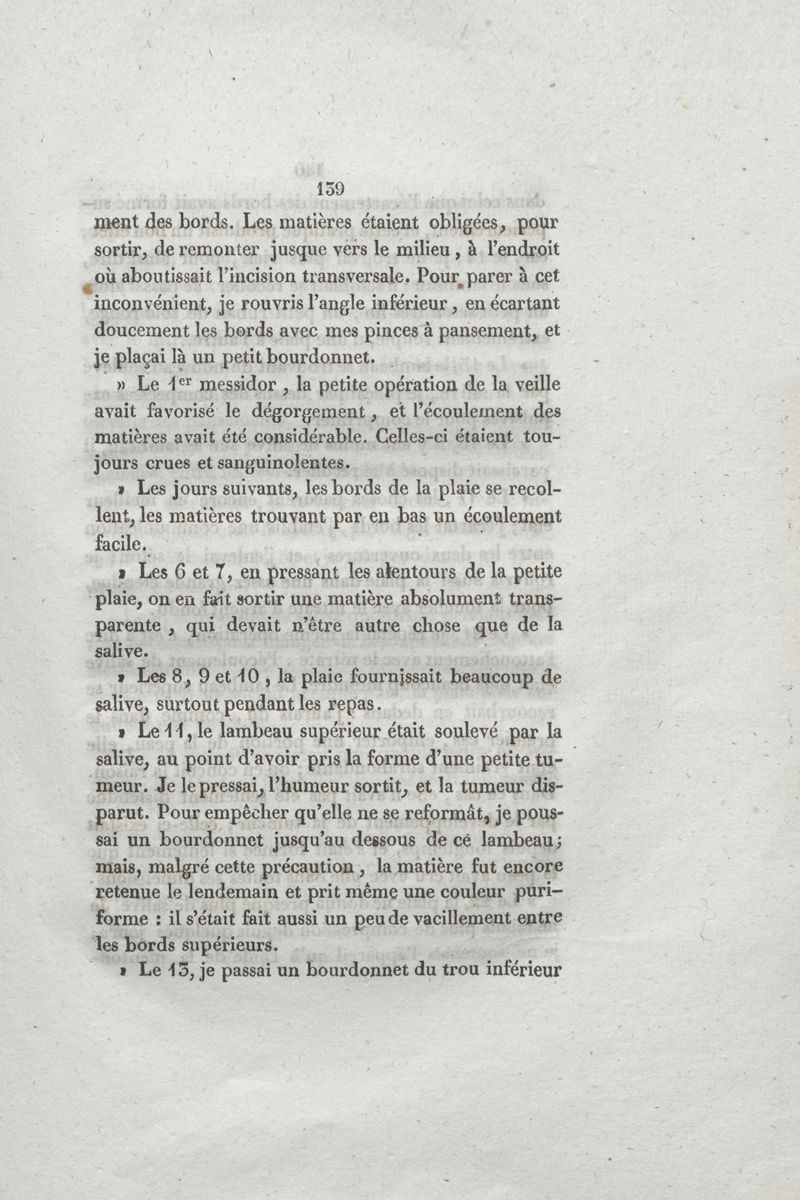 139
ment des bords. Les matières étaient obligées, pour
sortir, de remonter jusque vers le milieu, à l'endroit
où aboutissait l'incision transversale. Pour parer à cet
inconvénient, je rouvris l'angle inférieur, en écartant
doucement les bords avec mes pinces à pansement, et
je plaçai là un petit bourdonnet.
» Le 1er messidor, la petite opération de la veille
avait favorisé le dégorgement, et l'écoulement des
matières avait été considérable. Celles-ci étaient tou-
jours crues et sanguinolentes.
» Les jours suivants, les bords de la plaie se recol-
lent, les matières trouvant par en bas un écoulement
facile.
» Les 6 et 7, en pressant les alentours de la petite
plaie, on en fait sortir une matière absolument trans-
parente, qui devait n'être autre chose que de la
salive.
» Les 8, 9 et 10, la plaie fournissait beaucoup de
salive, surtout pendant les repas.
» Le 11, le lambeau supérieur était soulevé par la
salive, au point d'avoir pris la forme d'une petite tu-
meur. Je le pressai, l'humeur sortit, et la tumeur dis-
parut. Pour empêcher qu'elle ne se reformât, je pous-
sai un bourdonnet jusqu'au dessous de cé lambeau;
mais, malgré cette précaution, la matière fut encore
retenue le lendemain et prit même une couleur puri-
forme : il s'était fait aussi un peu de vacillement entre
les bords supérieurs.
» Le 13, je passai un bourdonnet du trou inférieur